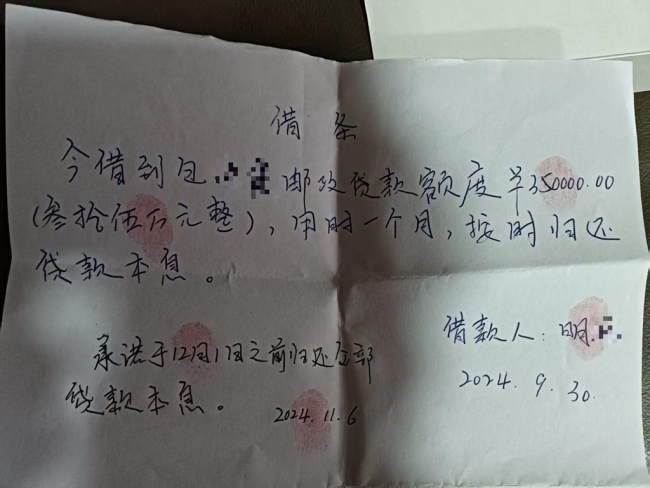 借条
今借到包 邮政贷款额度¥350000.00
(叁拾伍万元整),用时一个月,按时归还
贷款本息。
借款人:明
2024.9.30.
承诺于12月1日之前归还全部
贷款本息。
2024.11.6